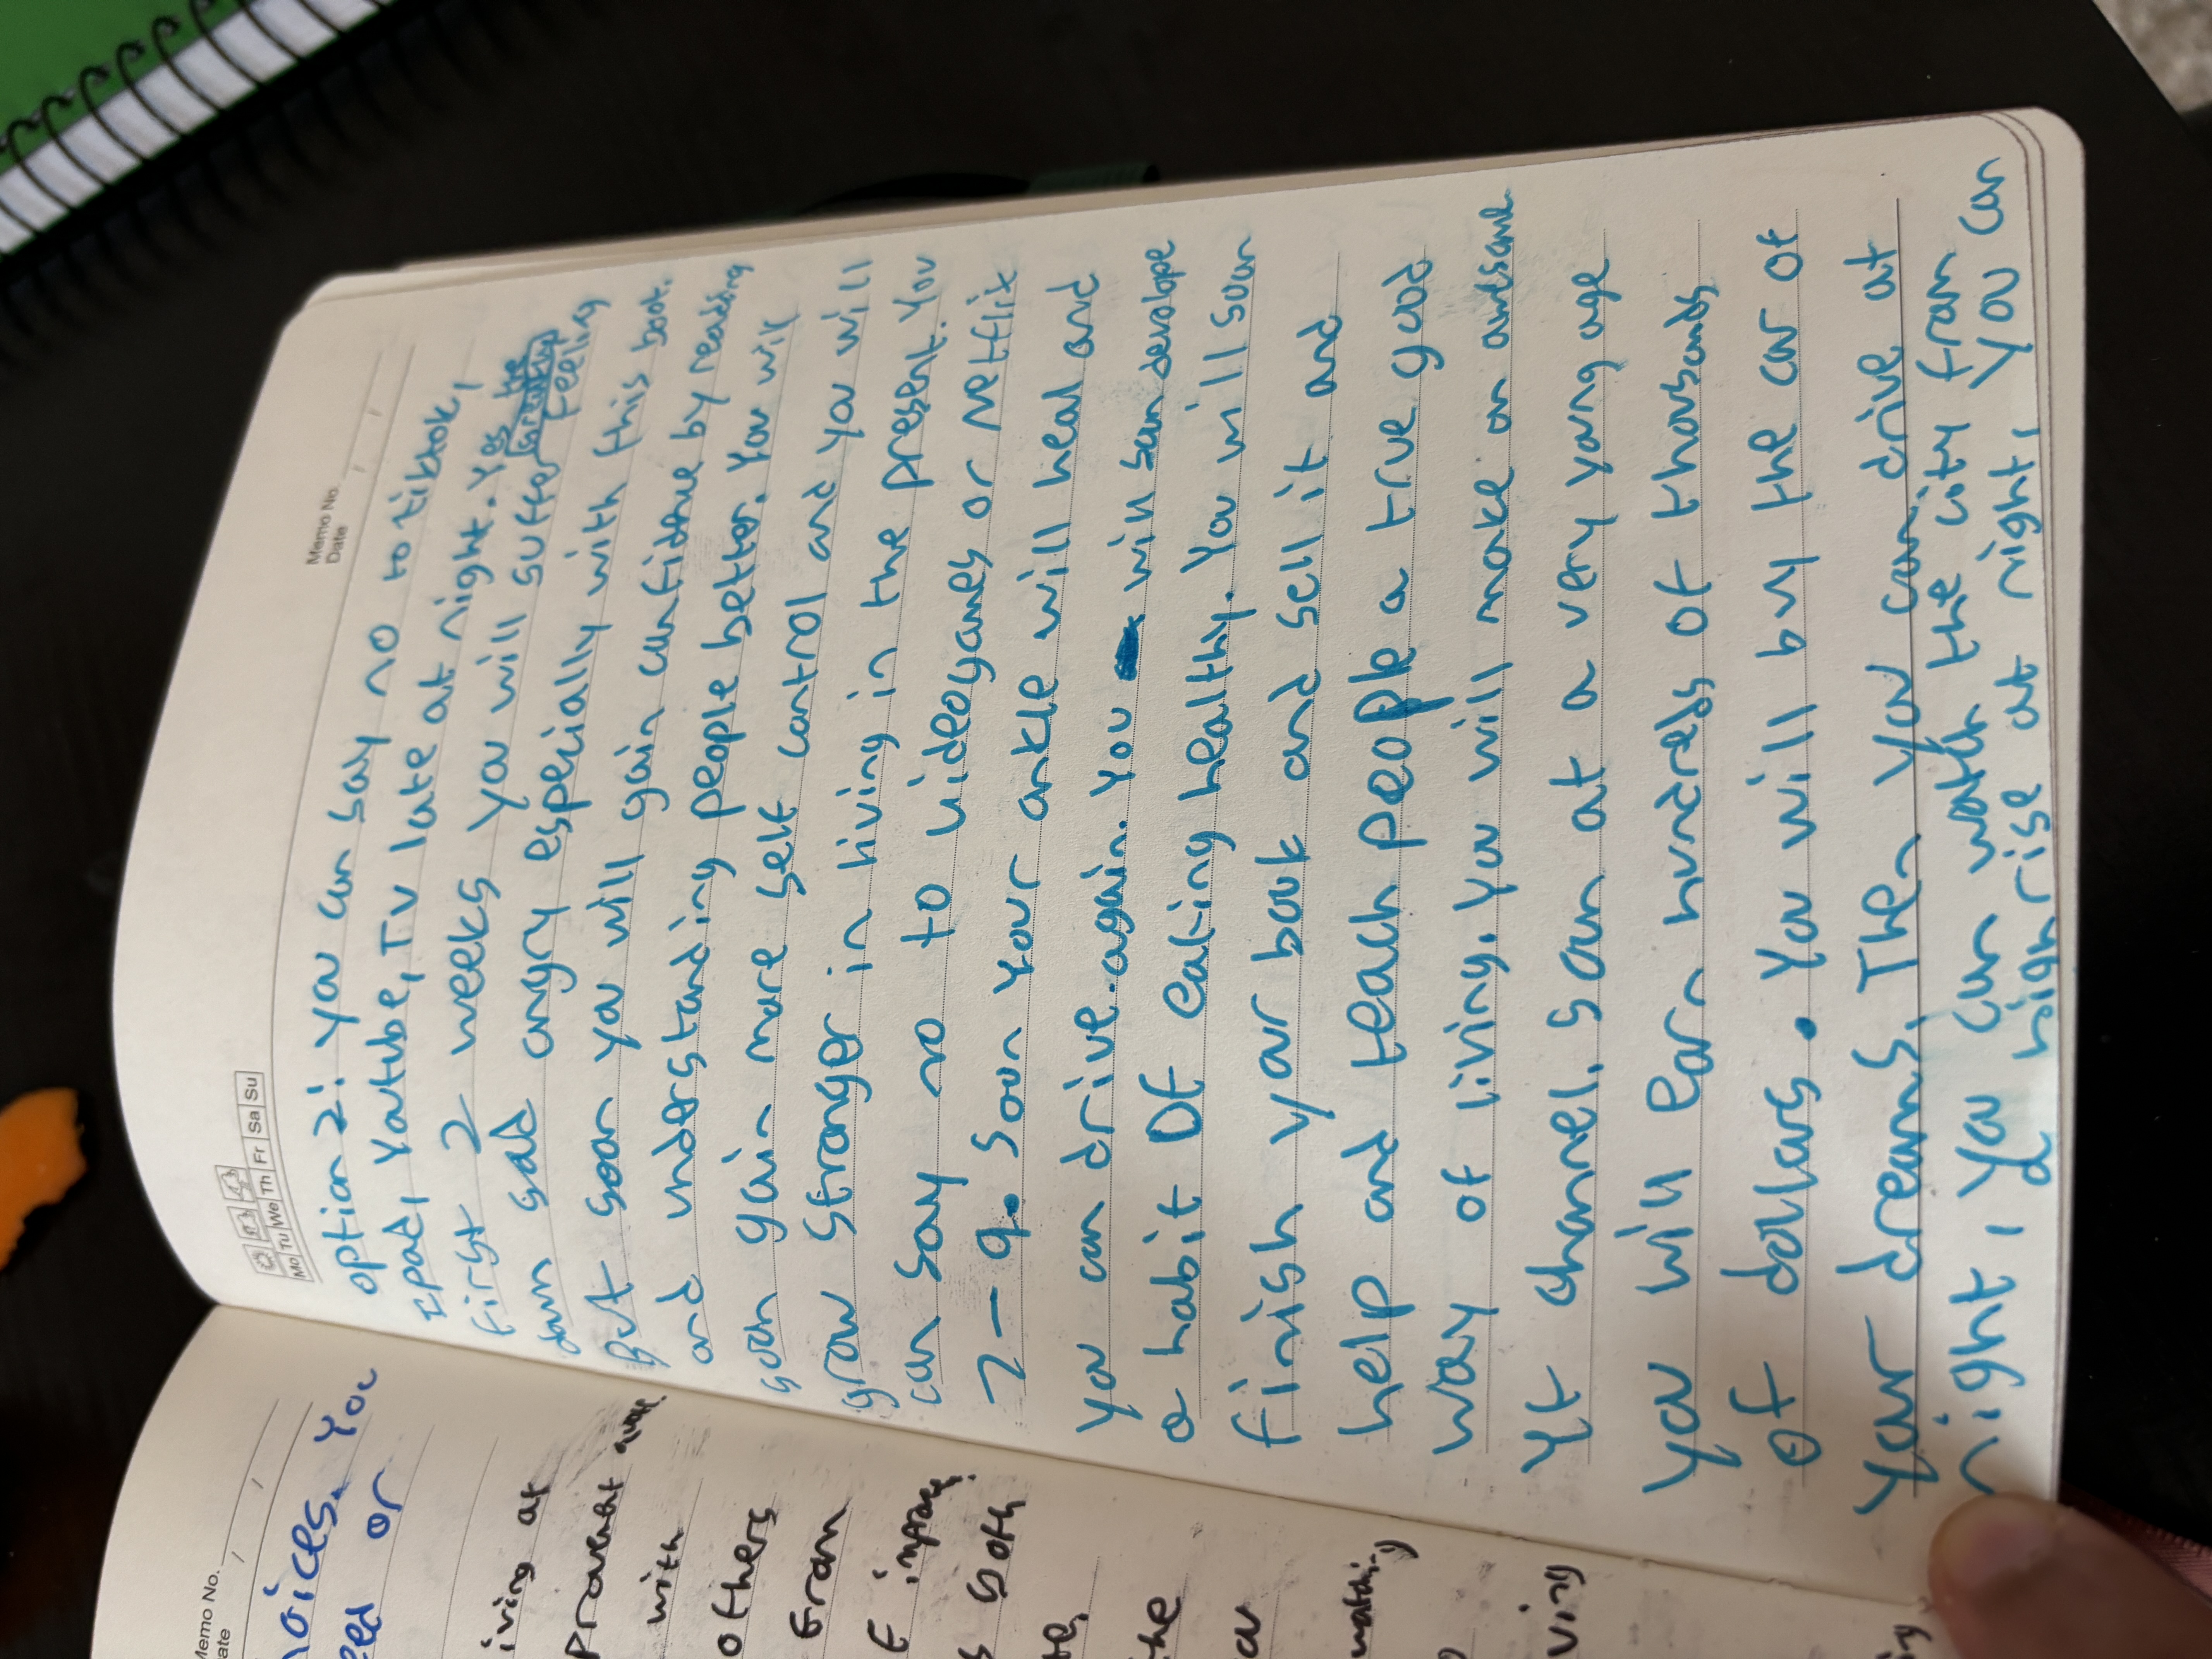 Memo No.
ate
oices. You
eed or
iving at
with
others
Gram
E
s both
te,
the
watching
ving
Mo Tu We Th Fr Sa Su
Memo No.
Date
option 2: you can say no to tiktok,
ipad, Youtube, TV late at night. Yes the
first 2 weeks you will suffer feeling
down sad angry especially with this boot.
But soon you will gain confidence by reading
and understanding people better. You will
soon gain more self control and you will
grow stronger in living in the present. You
can say no to videogames or Netflix
7-9. Soon your ankle will heal and
you can drive again. You will soon develope
a habit of eating healthy. You will soon
finish your book and sell it and
help and teach people a true good
way of living. You will make an awesome
Yt channel. Soon at a very young age
you will earn hundreds of thousands
of dollars. You will buy the car of
your dreams. Then you can drive at
night, you can watch the city from
a highrise at night, you can